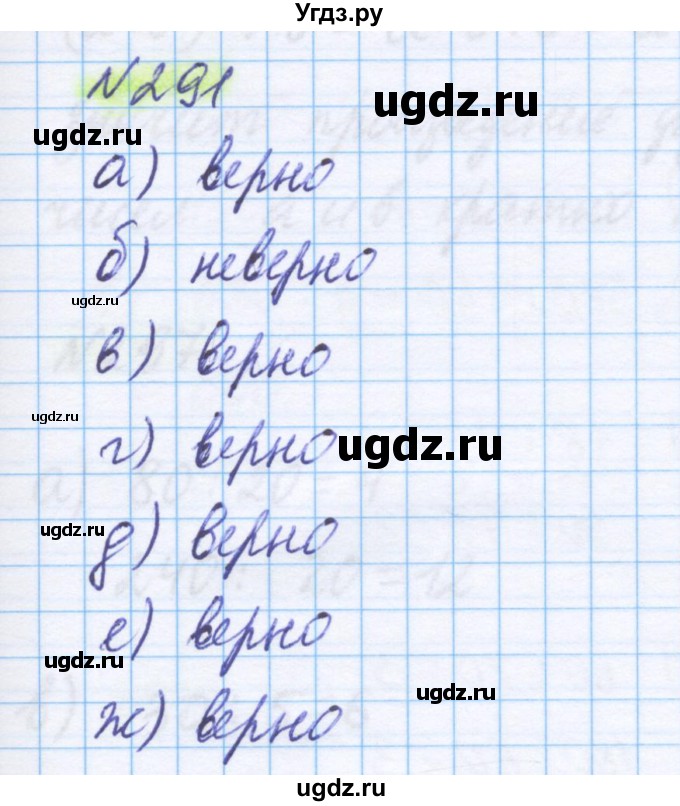 Угдз.ру
№291
ugdz.ru
ugdz.ru
а) верно
б) неверно
ugdz.ru
в) верно
ugdz.ru
г) верно
ugdz.ru
ugdz.ru
д) верно
е) верно
ugdz.ru
ugdz.ru
ж) верно
ugdz.ru